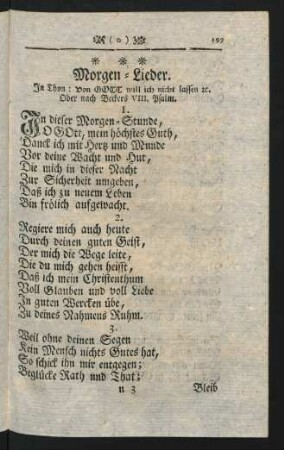 ( o ) 197
* * *
Morgen-Lieder.
In Thon: Von GOTT will ich nicht lassen ꝛc.
Oder nach Beckers VIII. Psalm.
1.
In dieser Morgen-Stunde,
O GOtt, mein höchstes Guth,
Danck ich mit Hertz und Munde
Vor deine Wacht und Hut,
Die mich in dieser Nacht
Zur Sicherheit umgeben,
Daß ich zu neuem Leben
Bin frölich aufgewacht.
2.
Regiere mich auch heute
Durch deinen guten Geist,
Der mich die Wege leite,
Die du mich gehen heisst,
Daß ich mein Christenthum
Voll Glauben und voll Liebe
In guten Wercken übe,
Zu deines Nahmens Ruhm.
3.
Weil ohne deinen Segen
Kein Mensch nichts Gutes hat,
So schick ihn mir entgegen;
Beglücke Rath und That:
n 3 Bleib